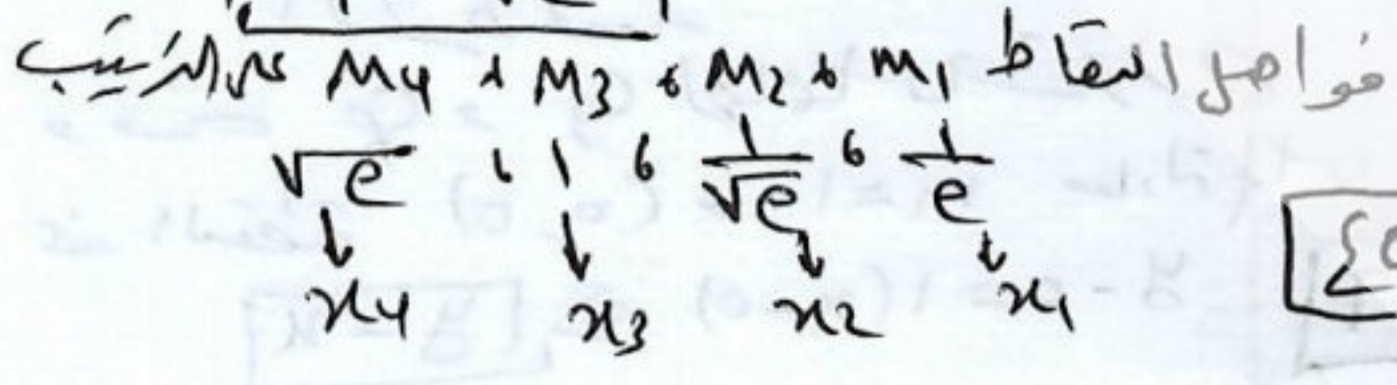 فواصل النقاط M₁ ، M₂ ، M₃ ، M₄ على الترتيب
1/e ، 1/√e ، 1 ، √e
x₁ x₂ x₃ x₄